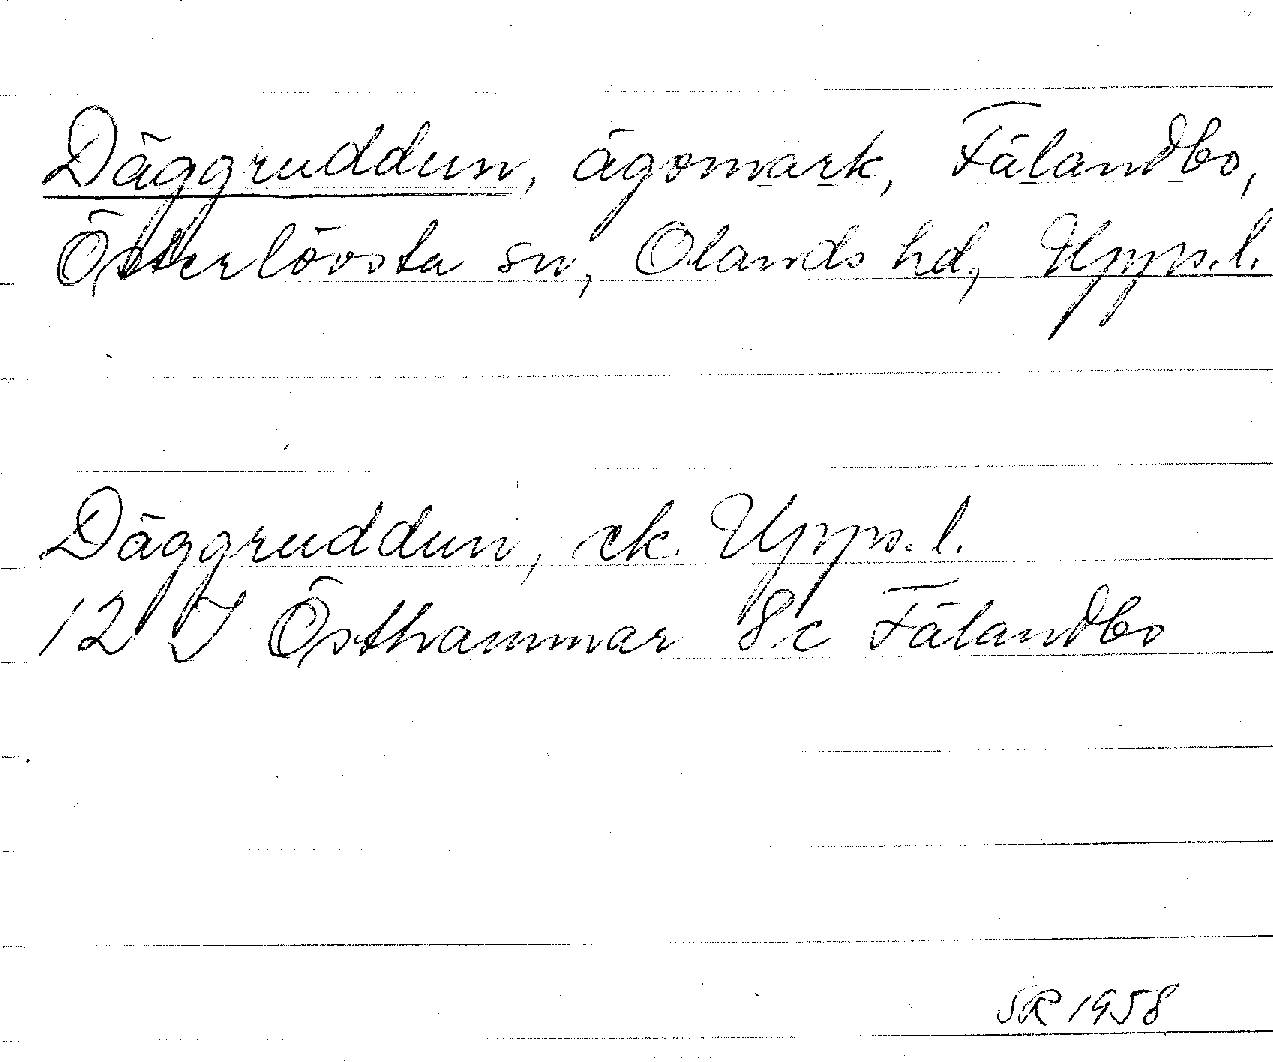 Däggruddun, ägomark, Fälandbo,
Österlövsta sn, Olands hd, Upps.l.
Däggruddun, ek. Upps.l.
12 I Östhammar 8c Fälandbo
SR 1958